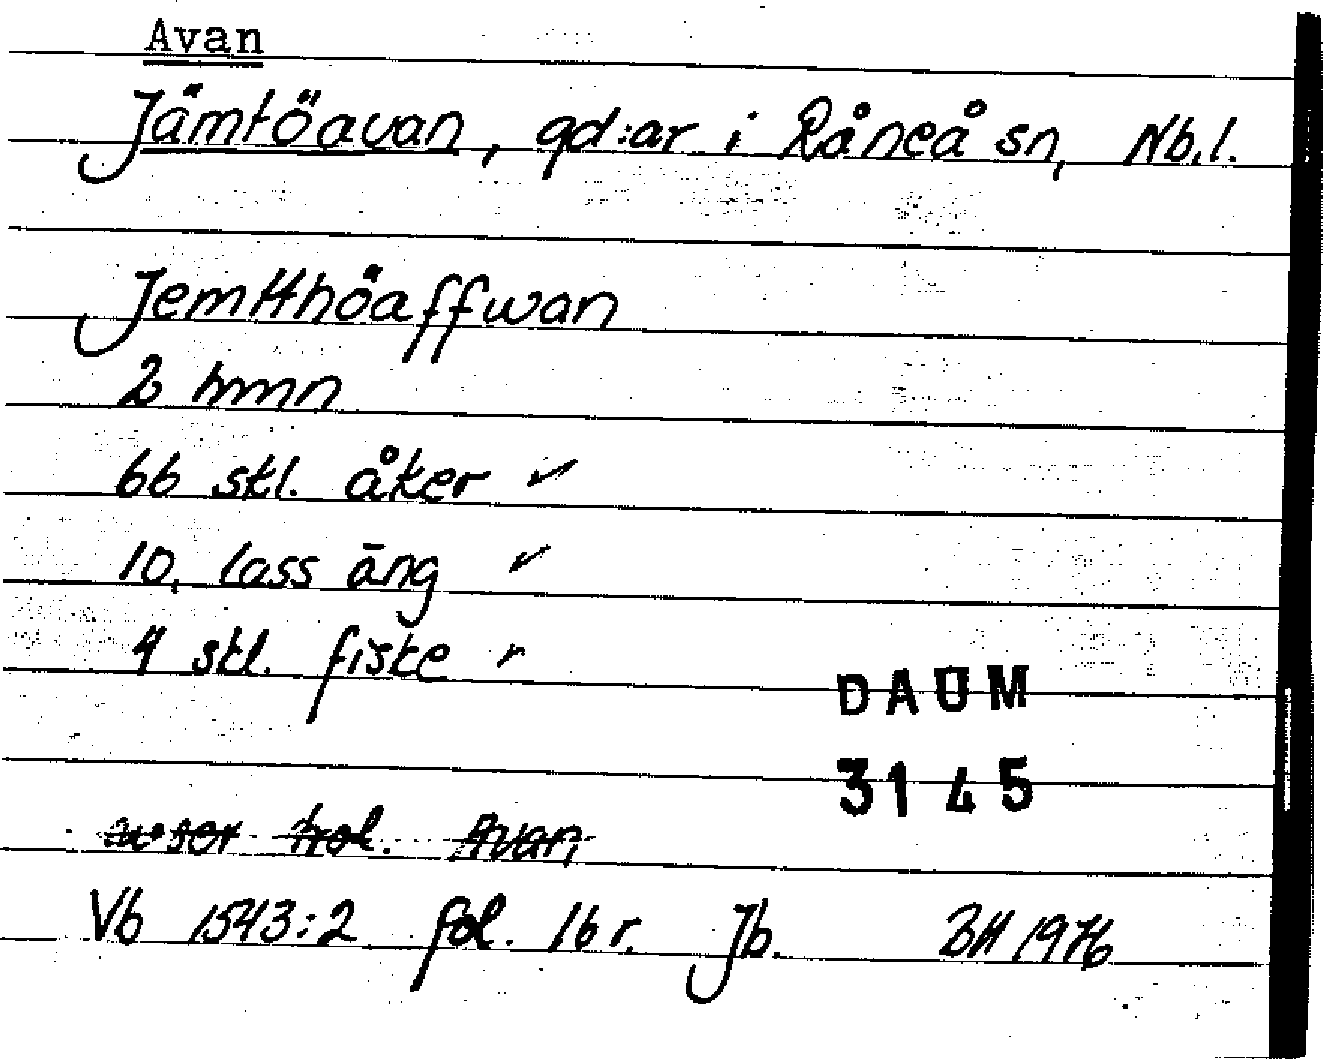 Avan
Jämtöavan, gd:ar i Råneå sn, Nb.l.
Jemtthöaffwan
2 hmn
66 stl. åker ✓
10, lass äng ✓
4 stl. fiske
DAUM
3145
avser trol. Avan
Vb 1543:2 fol. 16 r. Jb. BH 1976